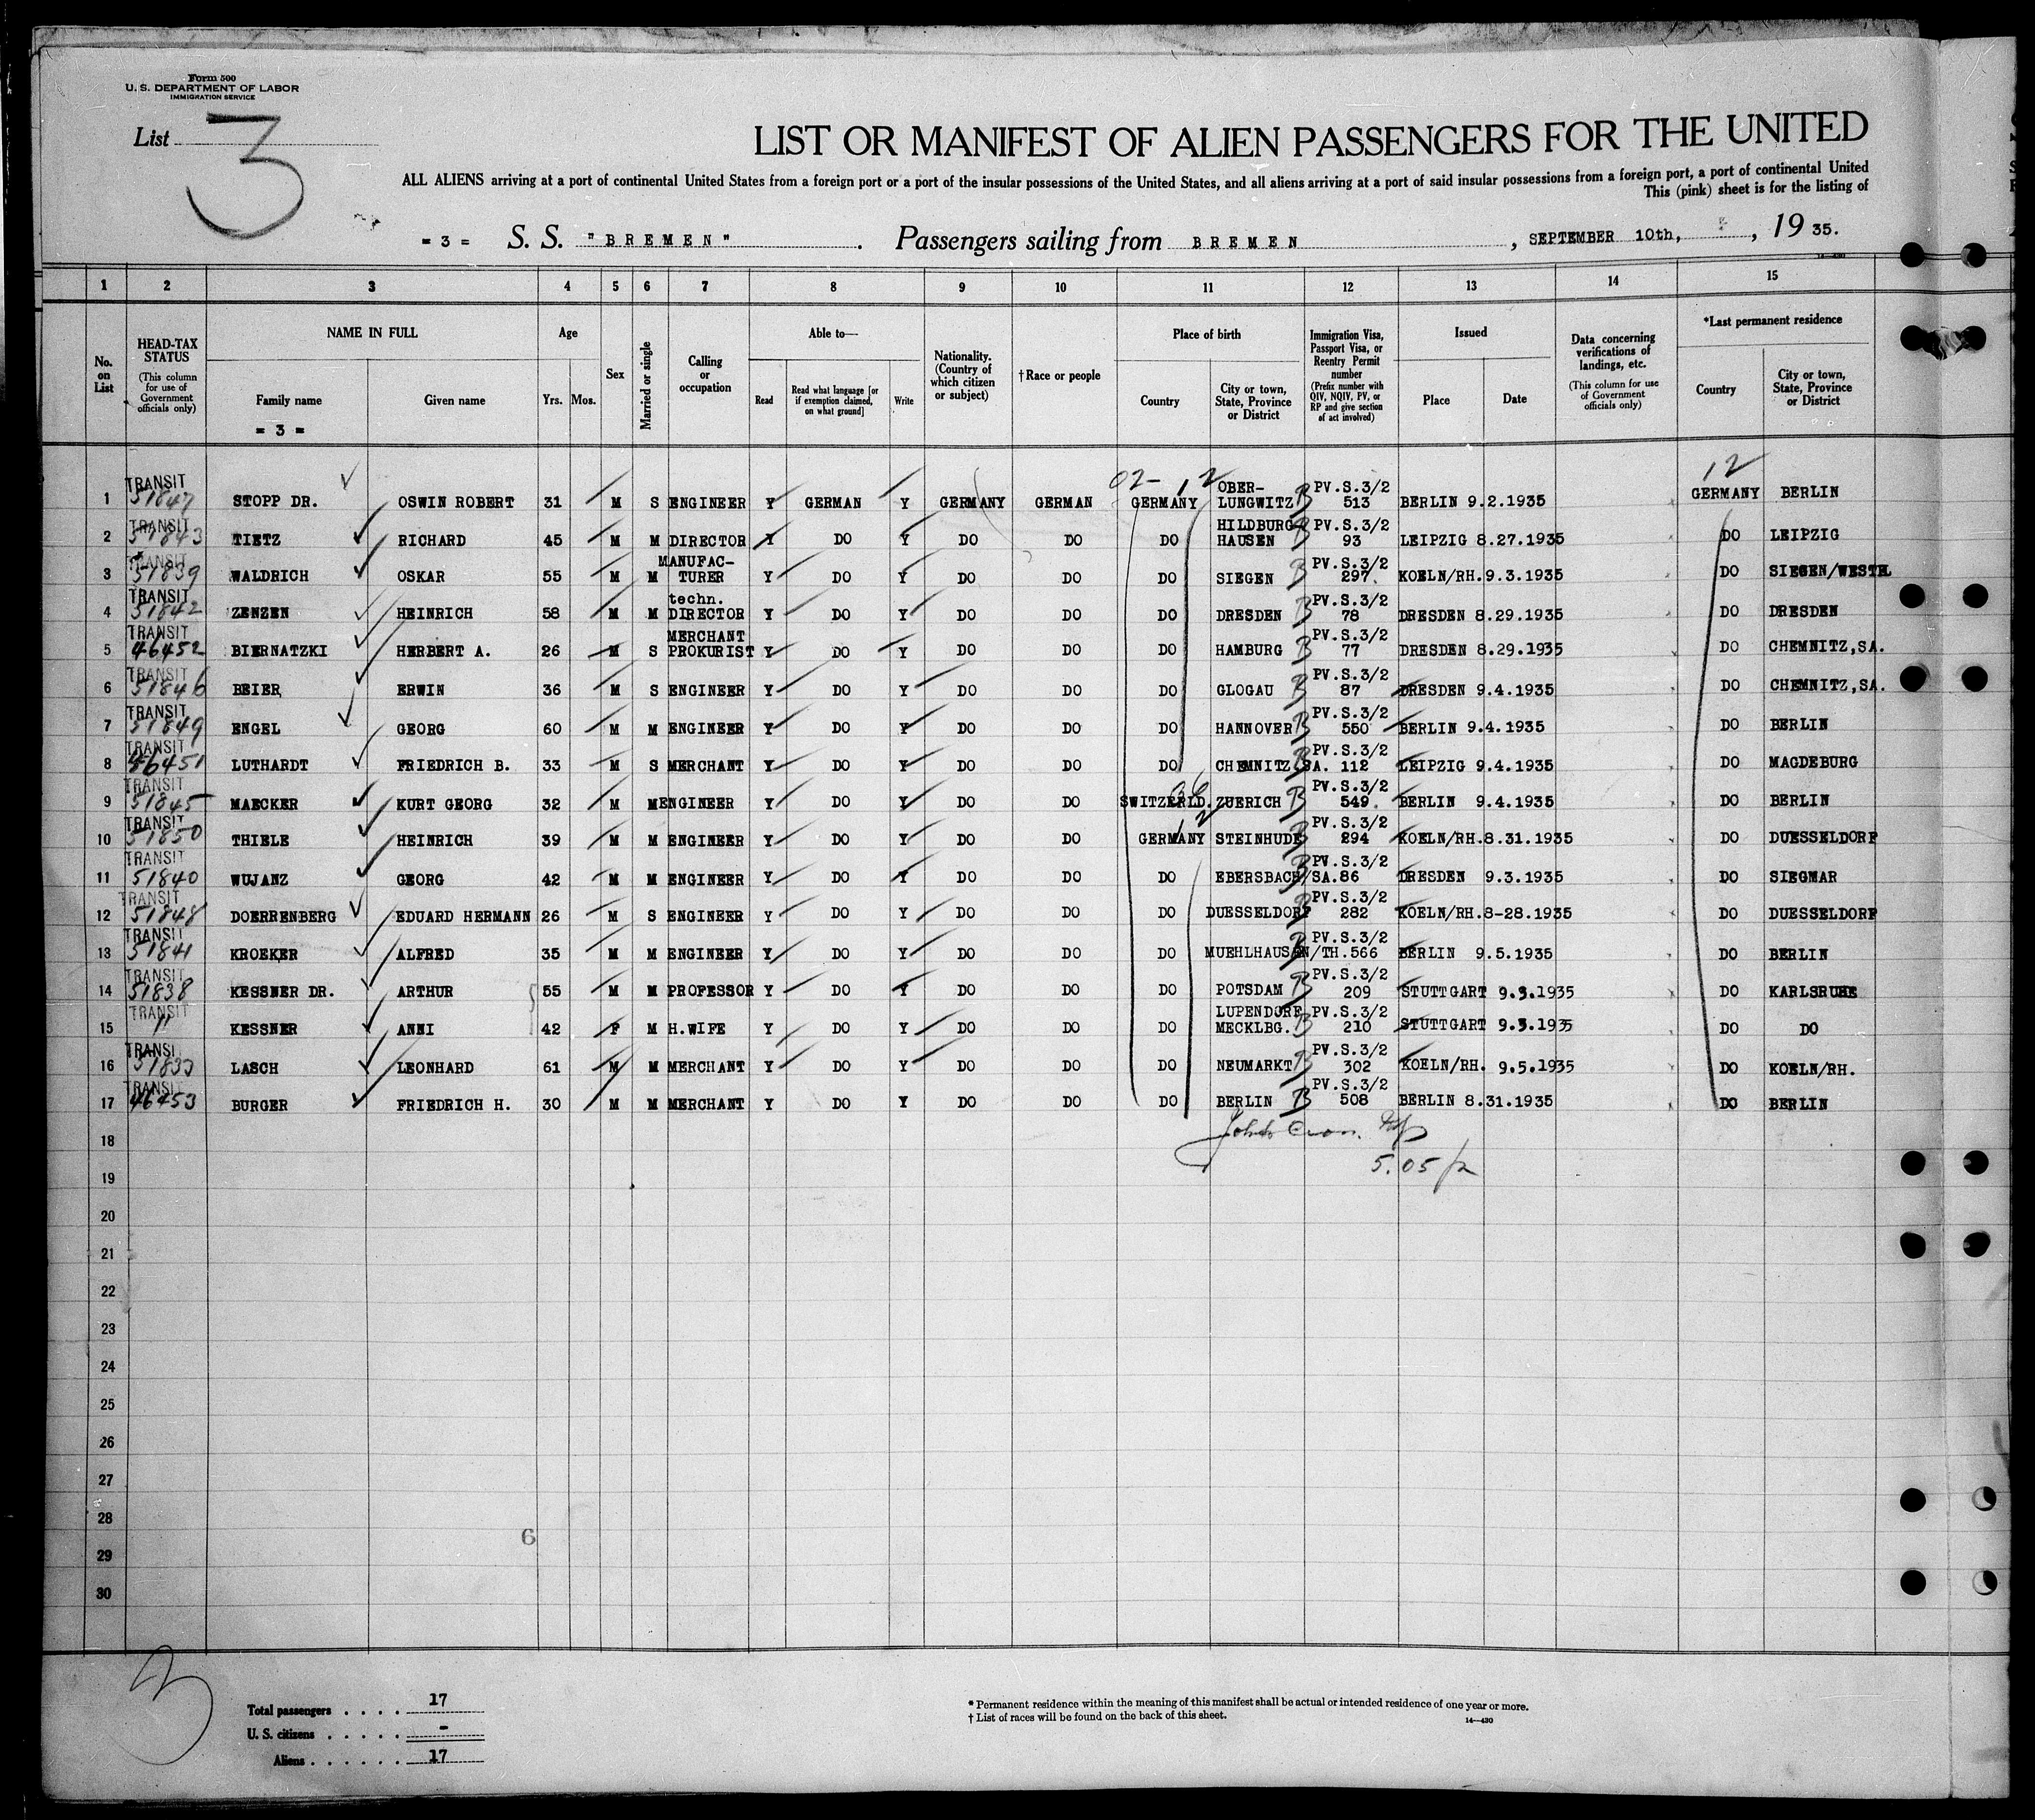 Form 500
U. S. DEPARTMENT OF LABOR
IMMIGRATION SERVICE
List 3
LIST OR MANIFEST OF ALIEN PASSENGERS FOR THE UNITED
ALL ALIENS arriving at a port of continental United States from a foreign port or a port of the insular possessions of the United States, and all aliens arriving at a port of said insular possessions from a foreign port, a port of continental United
This (pink) sheet is for the listing of
= 3 = S. S. "BREMEN" . Passengers sailing from BREMEN , SEPTEMBER 10th, , 19 35.
1 2 3 4 5 6 7 8 9 10 11 12 13 14 15
No. on List
HEAD-TAX STATUS (This column for use of Government officials only)
NAME IN FULL Family name Given name
= 3 =
Age Yrs. Mos.
Sex
Married or single
Calling or occupation
Able to— Read Read what language [or if exemption claimed, on what ground] Write
Nationality. (Country of which citizen or subject)
†Race or people
Place of birth Country City or town, State, Province or District
Immigration Visa, Passport Visa, or Reentry Permit number (Prefix number with QIV, NQIV, PV, or RP and give section of act involved)
Issued Place Date
Data concerning verifications of landings, etc. (This column for use of Government officials only)
*Last permanent residence Country City or town, State, Province or District
02- 12 12
1 TRANSIT 51847 STOPP DR. OSWIN ROBERT 31 M S ENGINEER Y GERMAN Y GERMANY GERMAN GERMANY OBER-LUNGWITZ PV.S.3/2 513 BERLIN 9.2.1935 GERMANY BERLIN
2 TRANSIT 51843 TIETZ RICHARD 45 M M DIRECTOR Y DO Y DO DO DO HILDBURG-HAUSEN PV.S.3/2 93 LEIPZIG 8.27.1935 DO LEIPZIG
3 TRANSIT 51839 WALDRICH OSKAR 55 M M MANUFAC-TURER Y DO Y DO DO DO SIEGEN PV.S.3/2 297. KOELN/RH. 9.3.1935 DO SIEGEN/WESTH
4 TRANSIT 51842 ZENZEN HEINRICH 58 M M techn. DIRECTOR Y DO Y DO DO DO DRESDEN PV.S.3/2 78 DRESDEN 8.29.1935 DO DRESDEN
5 TRANSIT 46452 BIERNATZKI HERBERT A. 26 M S MERCHANT PROKURIST Y DO Y DO DO DO HAMBURG PV.S.3/2 77 DRESDEN 8.29.1935 DO CHEMNITZ,SA.
6 TRANSIT 51846 BEIER ERWIN 36 M S ENGINEER Y DO Y DO DO DO GLOGAU PV.S.3/2 87 DRESDEN 9.4.1935 DO CHEMNITZ,SA.
7 TRANSIT 51849 ENGEL GEORG 60 M M ENGINEER Y DO Y DO DO DO HANNOVER PV.S.3/2 550 BERLIN 9.4.1935 DO BERLIN
8 TRANSIT 46451 LUTHARDT FRIEDRICH B. 33 M S MERCHANT Y DO Y DO DO DO CHEMNITZ SA. PV.S.3/2 112 LEIPZIG 9.4.1935 DO MAGDEBURG
9 TRANSIT 51845 MAECKER KURT GEORG 32 M M ENGINEER Y DO Y DO DO SWITZERLD. ZUERICH PV.S.3/2 549. BERLIN 9.4.1935 DO BERLIN
10 TRANSIT 51850 THIELE HEINRICH 39 M M ENGINEER Y DO Y DO DO GERMANY STEINHUDE PV.S.3/2 294 KOELN/RH. 8.31.1935 DO DUESSELDORF
11 TRANSIT 51840 WUJANZ GEORG 42 M M ENGINEER Y DO Y DO DO DO EBERSBACH/SA. PV.S.3/2 86 DRESDEN 9.3.1935 DO SIEGMAR
12 TRANSIT 51848 DOERRENBERG EDUARD HERMANN 26 M S ENGINEER Y DO Y DO DO DO DUESSELDORF PV.S.3/2 282 KOELN/RH. 8-28.1935 DO DUESSELDORF
13 TRANSIT 51841 KROEKER ALFRED 35 M M ENGINEER Y DO Y DO DO DO MUEHLHAUSEN/TH. PV.S.3/2 566 BERLIN 9.5.1935 DO BERLIN
14 TRANSIT 51838 KESSNER DR. ARTHUR 55 M M PROFESSOR Y DO Y DO DO DO POTSDAM PV.S.3/2 209 STUTTGART 9.3.1935 DO KARLSRUHE
15 TRANSIT " KESSNER ANNI 42 F M H.WIFE Y DO Y DO DO DO LUPENDORF MECKLBG. PV.S.3/2 210 STUTTGART 9.3.1935 DO DO
16 TRANSI 51833 LASCH LEONHARD 61 M M MERCHANT Y DO Y DO DO DO NEUMARKT PV.S.3/2 302 KOELN/RH. 9.5.1935 DO KOELN/RH.
17 TRANSIT 46453 BURGER FRIEDRICH H. 30 M M MERCHANT Y DO Y DO DO DO BERLIN PV.S.3/2 508 BERLIN 8.31.1935 DO BERLIN
18
5.05
19
20
21
22
23
24
25
26
27
28
6
29
30
3
Total passengers . . . . 17
U. S. citizens . . . . . -
Aliens . . . . . . 17
* Permanent residence within the meaning of this manifest shall be actual or intended residence of one year or more.
† List of races will be found on the back of this sheet.
14—430